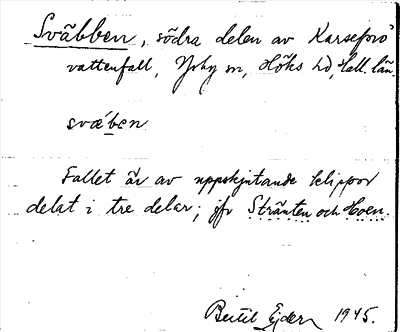 Sväbben, södra delen av Karsefors
vattenfall, Ysby sn, Höks hd, Hall. län.
svæ̀ben
Fallet är av uppskjutande klippor
delat i tre delar; jfr Stränten och Hoen.
Bertil Ejder 1945.